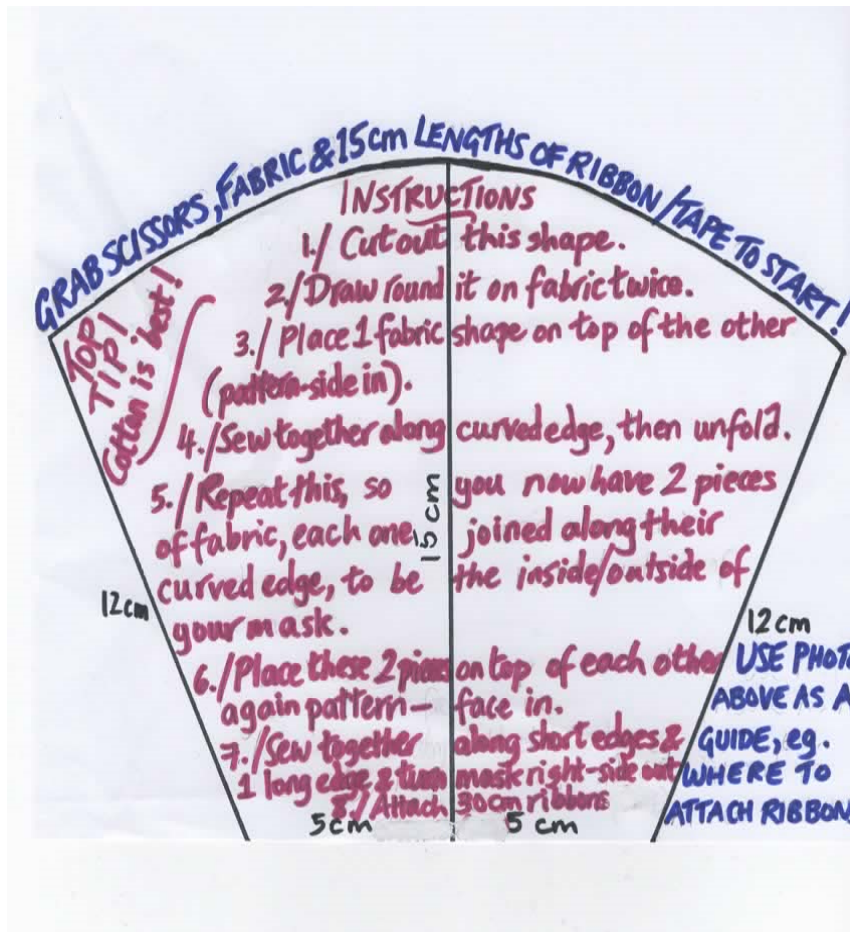 GRAB SCISSORS, FABRIC & 15cm LENGTHS OF RIBBON/TAPE TO START!
TOP
TIP!
Cotton is best!
INSTRUCTIONS
1./ Cut out this shape.
2./ Draw round it on fabric twice.
3./ Place 1 fabric shape on top of the other
(pattern-side in).
4./ Sew together along curved edge, then unfold.
5./ Repeat this, so you now have 2 pieces
of fabric, each one joined along their
curved edge, to be the inside/outside of
your mask.
6./ Place these 2 pieces on top of each other
again pattern-face in.
7./ Sew together along short edges &
1 long edge & turn mask right-side out
8./ Attach 30cm ribbons
15 cm
12cm
12cm
5cm
5 cm
USE PHOTO
ABOVE AS A
GUIDE, eg.
WHERE TO
ATTACH RIBBON